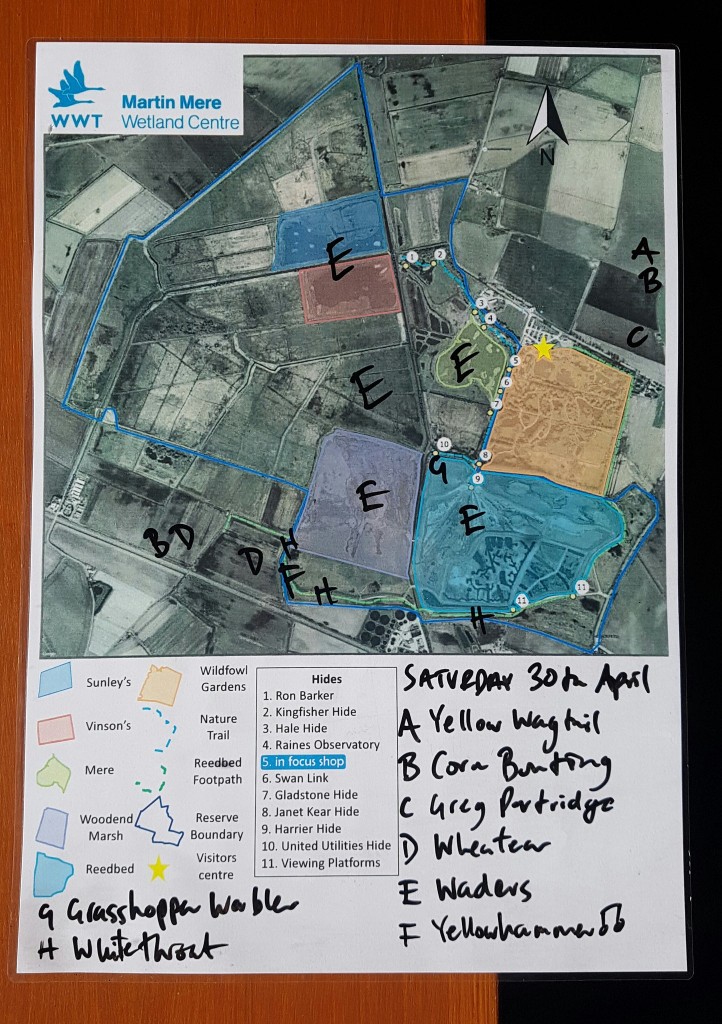 WWT
Martin Mere
Wetland Centre
N
A
B
C
E
E
E
E
E
E
G
B D
D
H
F
H
H
1
2
3
4
5
6
7
10
8
9
11
11
Sunley's
Wildfowl
Gardens
Vinson's
Nature
Trail
Mere
Reedbed
Footpath
Woodend
Marsh
Reserve
Boundary
Reedbed
Visitors
centre
Hides
1. Ron Barker
2. Kingfisher Hide
3. Hale Hide
4. Raines Observatory
5. in focus shop
6. Swan Link
7. Gladstone Hide
8. Janet Kear Hide
9. Harrier Hide
10. United Utilities Hide
11. Viewing Platforms
SATURDAY 30th April
A Yellow Wagtail
B Corn Bunting
C Grey Partridge
D Wheatear
E Waders
F Yellowhammer
G Grasshopper Warbler
H Whitethroat